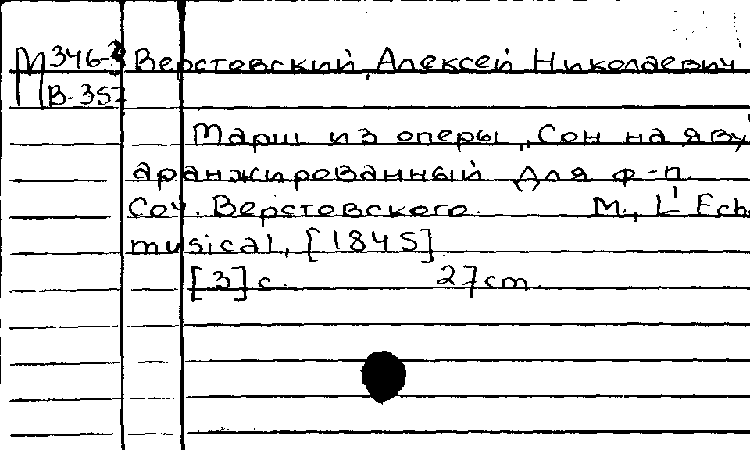 М 346-3 Верстовский, Алексей Николаевич
В-357
Марш из оперы „Сон на яву
аранжированный для ф-п.
Соч. Верстовского. М., L'Echo
musical, [1845]
[3] с. 27 cm.